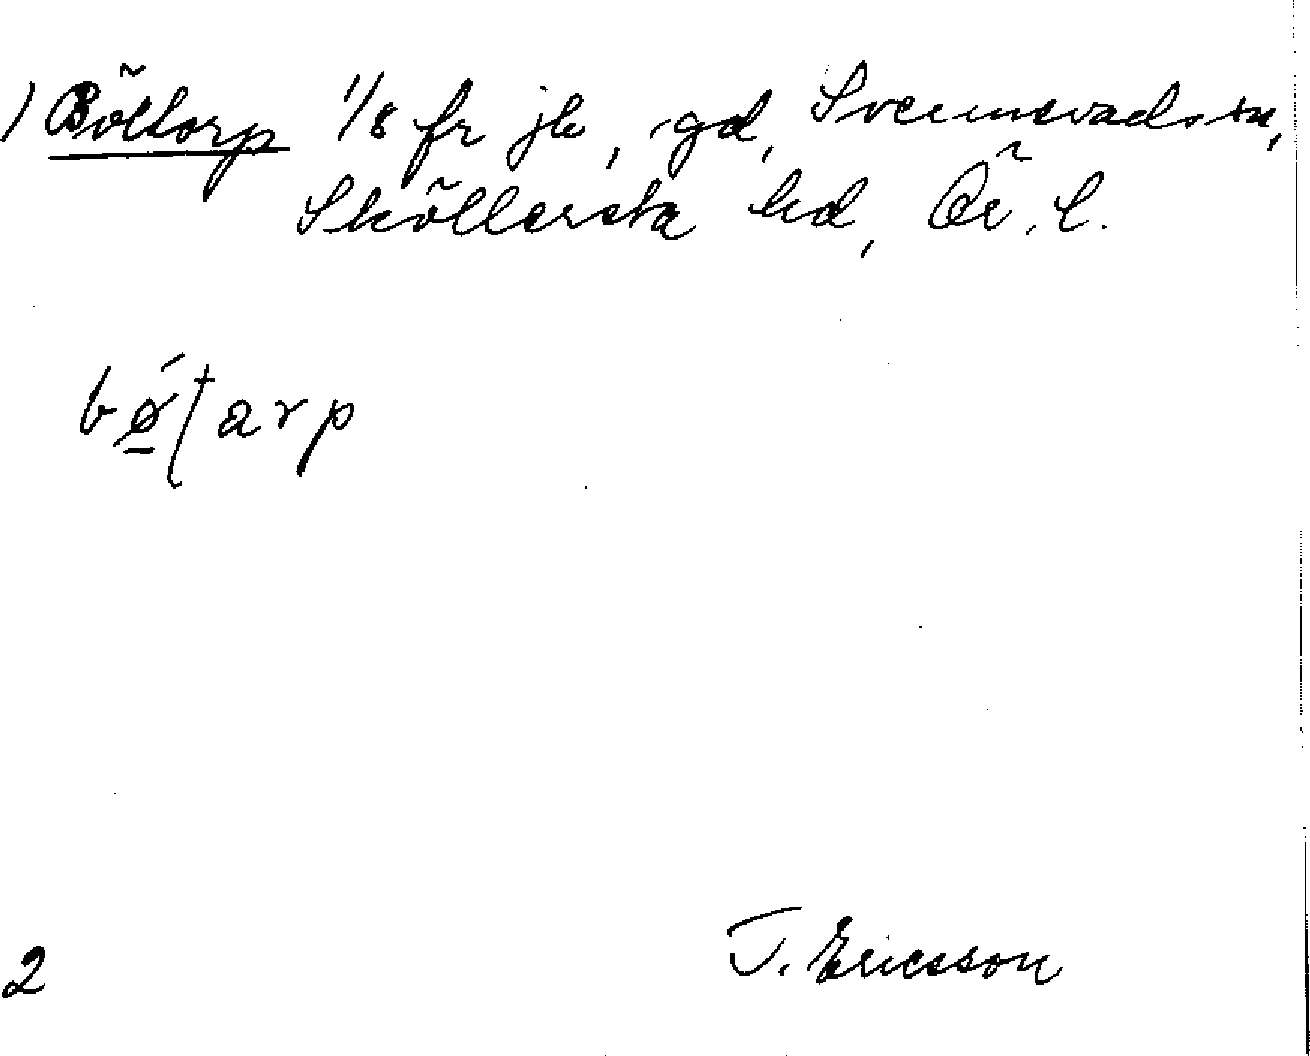 1) Böltorp 1/8 fr jb, gd, Svennevads sn,
Sköllersta hd, Ör. l.
bǿltarp
2
T. Ericsson